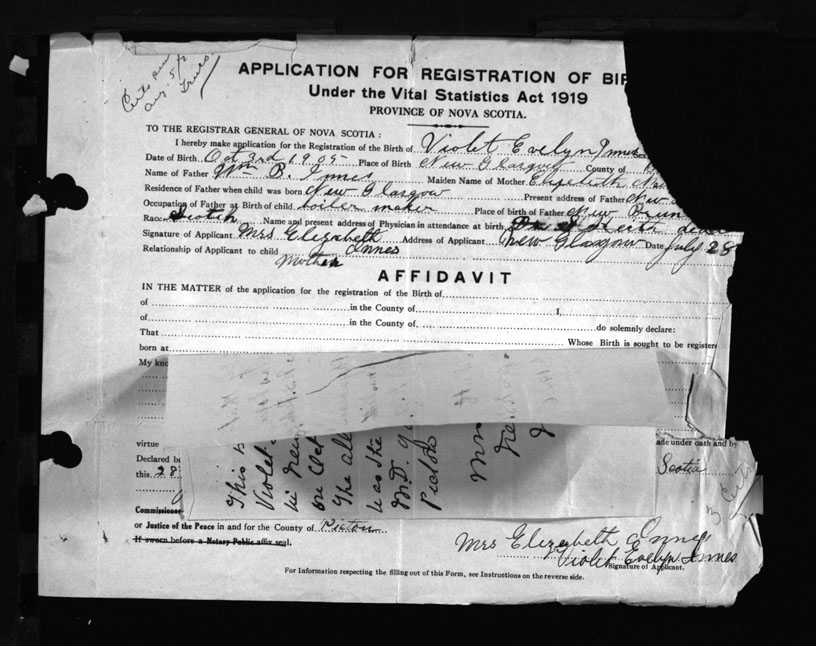 Aug. 5/2
APPLICATION FOR REGISTRATION OF BIR
Under the Vital Statistics Act 1919
PROVINCE OF NOVA SCOTIA.
TO THE REGISTRAR GENERAL OF NOVA SCOTIA :
I hereby make application for the Registration of the Birth of Violet Evelyn Innes Sex
Date of Birth Oct 3rd 1905 Place of Birth New Glasgow County of
Name of Father Wm B. Innes Maiden Name of Mother Elizabeth
Residence of Father when child was born New Glasgow Present address of Father New
Occupation of Father at Birth of child boiler maker Place of birth of Father New Brun
Race Scotch Name and present address of Physician in attendance at birth
Signature of Applicant Mrs Elizabeth Innes Address of Applicant New Glasgow Date July 28
Relationship of Applicant to child Mother
AFFIDAVIT
IN THE MATTER of the application for the registration of the Birth of
of in the County of I,
of in the County of do solemnly declare:
That Whose Birth is sought to be register
born at
My kno
virtue ade under oath and by
Declared be Scotia
this 28
This is
Violet
in New
on Oct
The
was the
M.D.
Pictou
Mrs
Ne
J
3 Certs
Commissioner
or Justice of the Peace in and for the County of Pictou
If sworn before a Notary Public affix seal.
Mrs Elizabeth Innes
Violet Evelyn Innes
Signature of Applicant.
For Information respecting the filling out of this Form, see Instructions on the reverse side.